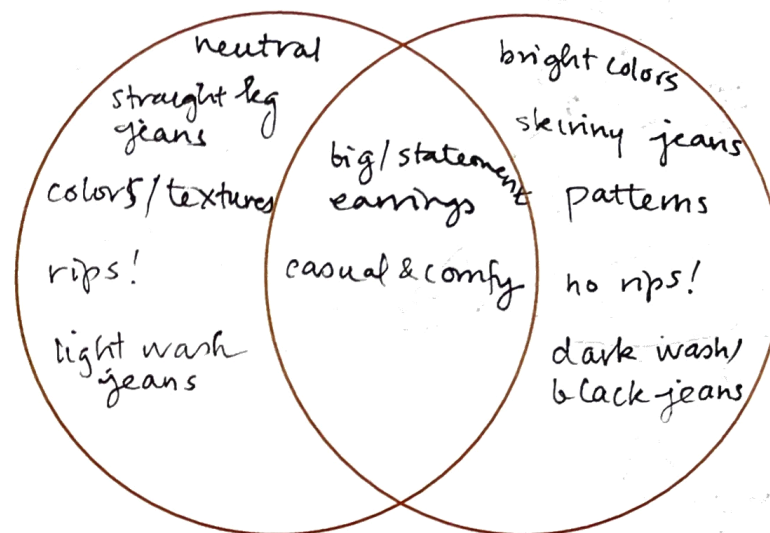 neutral
straight leg
jeans
colors/textures
rips!
light wash
jeans
big/statement
earrings
casual & comfy
bright colors
skinny jeans
patterns
no rips!
dark wash/
black jeans